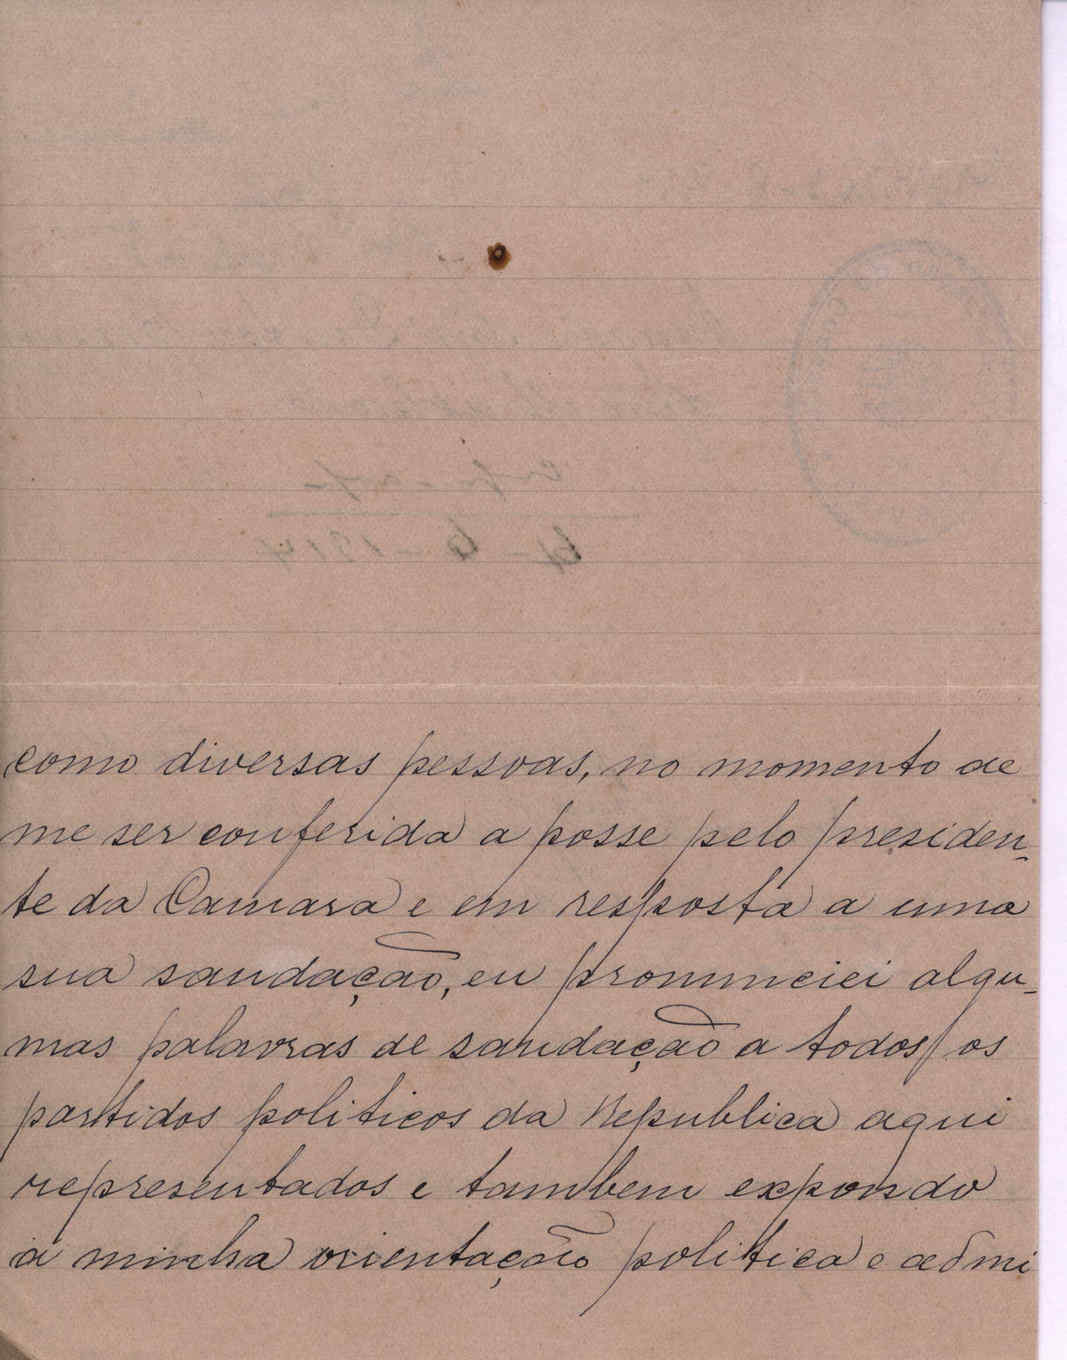 como diversas pessoas, no momento de
me ser conferida a posse pelo presiden-
te da Camara e em resposta a uma
sua saudação, eu pronunciei algu-
mas palavras de saudação a todos os
partidos politicos da Republica aqui
representados e tambem expondo
a minha orientação politica e admi